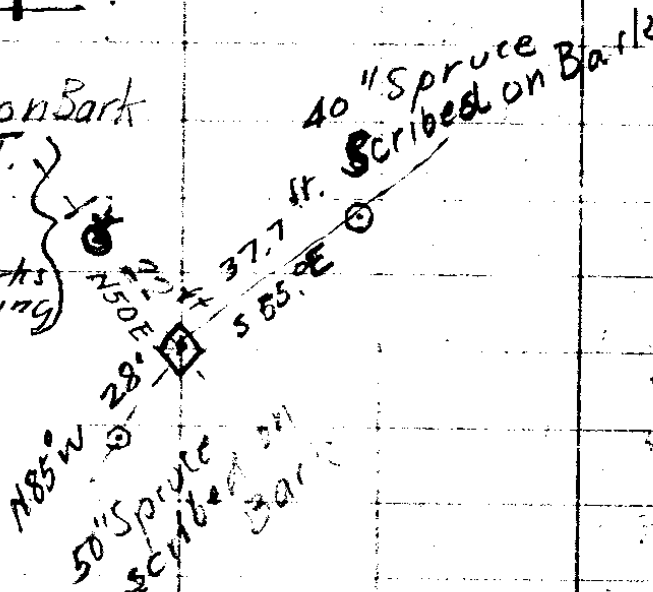 onBark
T.
40 "Spruce
Scribed on Bark
37.7 ft.
S 55.°E
ft
N50E
28'
N85°W
50"Spruce
scribed on
Bark